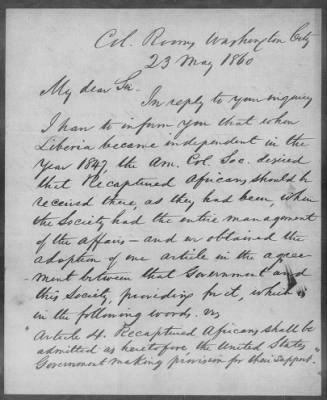 Col. Rooms Washington City
23 May 1860
My dear Sir.
In reply to your inquiry
I have to inform you that when
Liberia became independent in the
year 1847, the Am. Col. Soc. desired
that Recaptured Africans should be
received there, as they had been, when
the Society had the entire management
of the affairs – and we obtained the
adoption of one article in the agree
ment between that Government and
this Society, providing for it, which is
in the following words.
"Article 4. Recaptured Africans shall be
admitted as heretofore, the United States
Government making provision for their support."